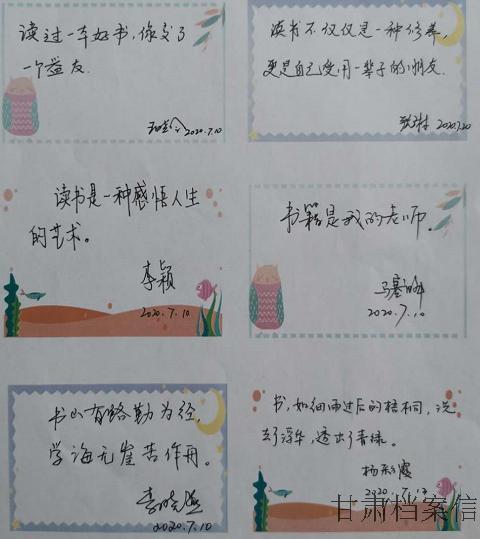 读过一本好书,像交了
一个益友.
2020.7.10
读书不仅仅是一种修养,
更是自己受用一辈子的朋友.
2020.7.10
读书是一种感悟人生
的艺术。
李颖
2020.7.10
书籍是我的老师。
2020.7.10
书山有路勤为径,
学海无崖苦作舟。
李晓燕
2020.7.10
书,如细雨过后的梧桐,洗
去了浮华,透出了青绿。
杨彩霞
2020.7.13
甘肃档案信